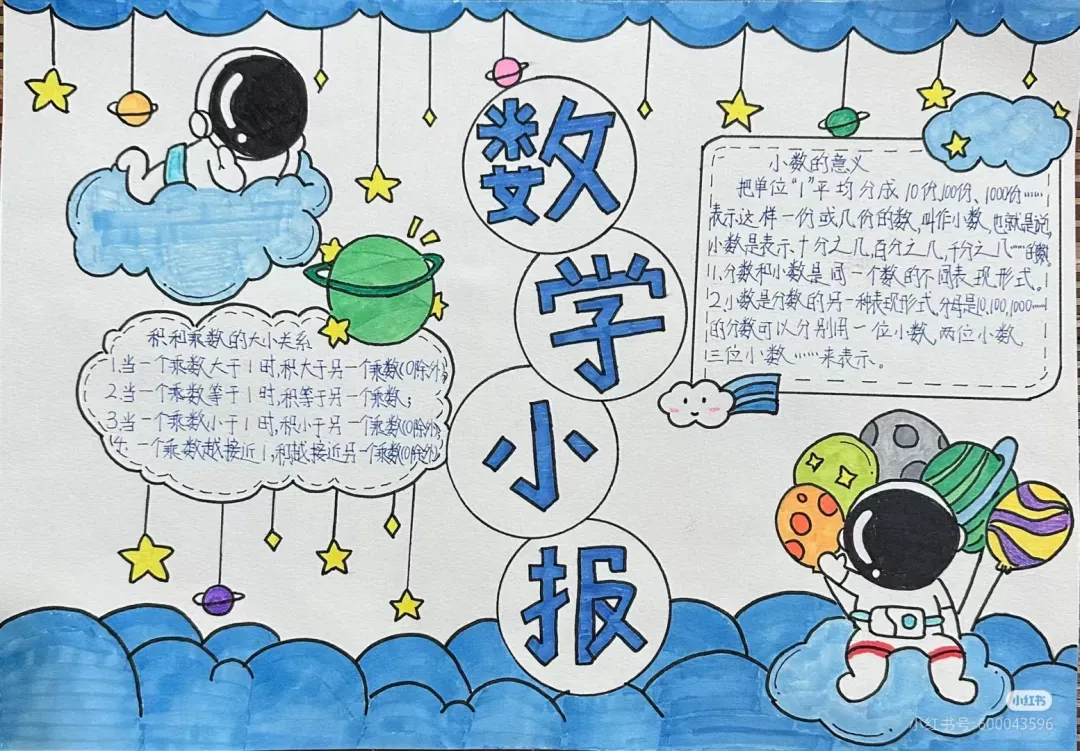 数
学
小
报
积和乘数的大小关系
1.当一个乘数大于1时,积大于另一个乘数(0除外)
2.当一个乘数等于1时,积等于另一个乘数;
3.当一个乘数小于1时,积小于另一个乘数(0除外)
4.一个乘数越接近1,积越接近另一个乘数(0除外)
小数的意义
把单位“1”平均分成10份,100份、1000份……
表示这样一份或几份的数,叫作小数,也就是说,
小数是表示十分之几,百分之几,千分之几……的数
1.分数和小数是同一个数的不同表现形式。
2.小数是分数的另一种表现形式,分母是10,100,1000……
的分数可以分别用一位小数,两位小数,
三位小数……来表示。
小红书
小红书号 600043596